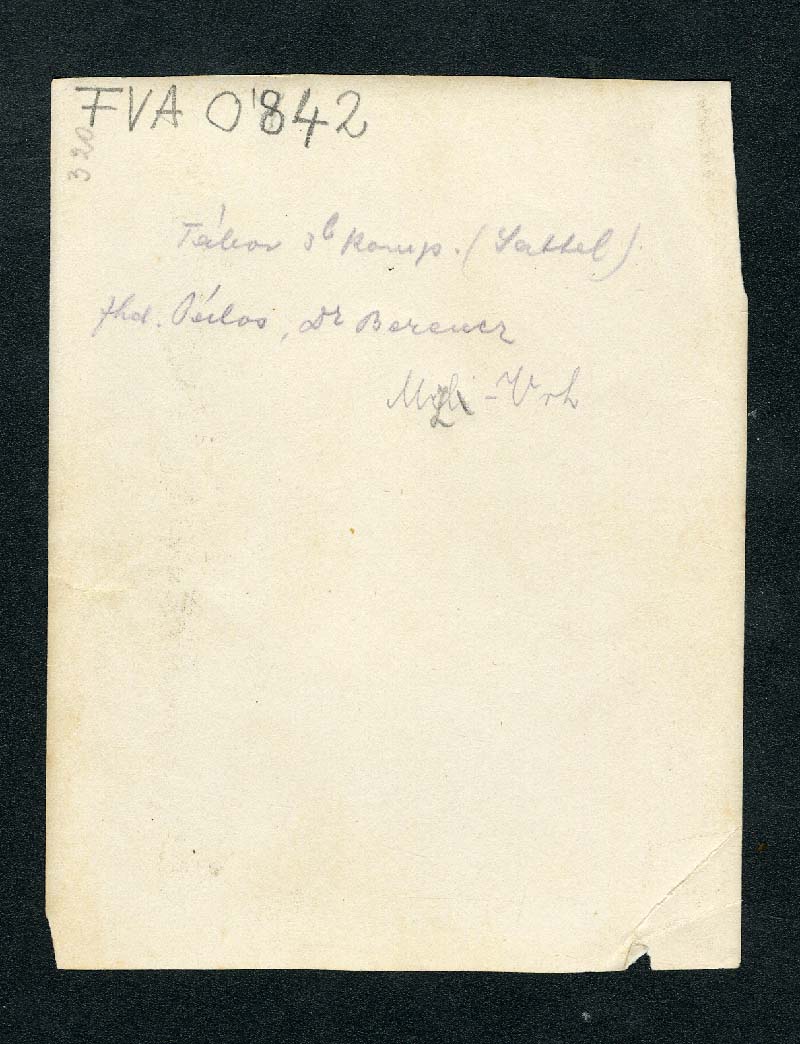 FVA 0'842
320
Tábor 3b Komp. (Sattel)
fhd. Pálos, Dr Berencz
Mzli-Vrh